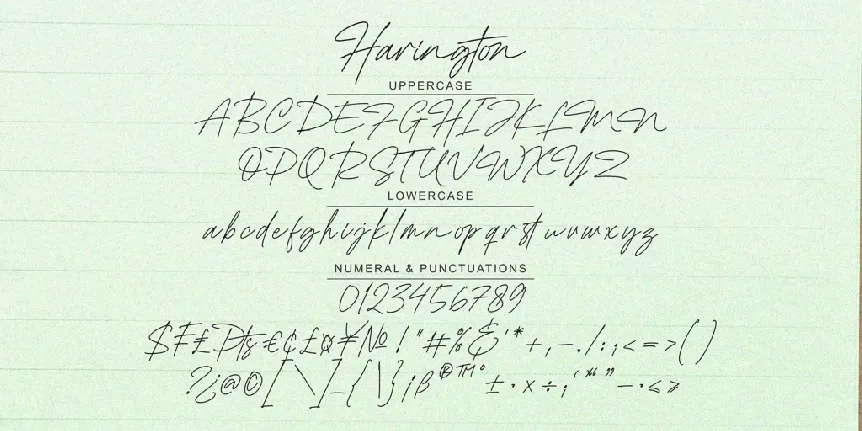 Harington
UPPERCASE
ABCDEFGHIJKLMN
OPQRSTUVWXYZ
LOWERCASE
abcdefghijklmnopqrstuvwxyz
NUMERAL & PUNCTUATIONS
0123456789
$₣₤₧€¢£¤¥№!"#%&'*+,-./:;<=>()
?¿@©[\]_{|}¡ß®™°±·×÷¸‘“”–•‹›